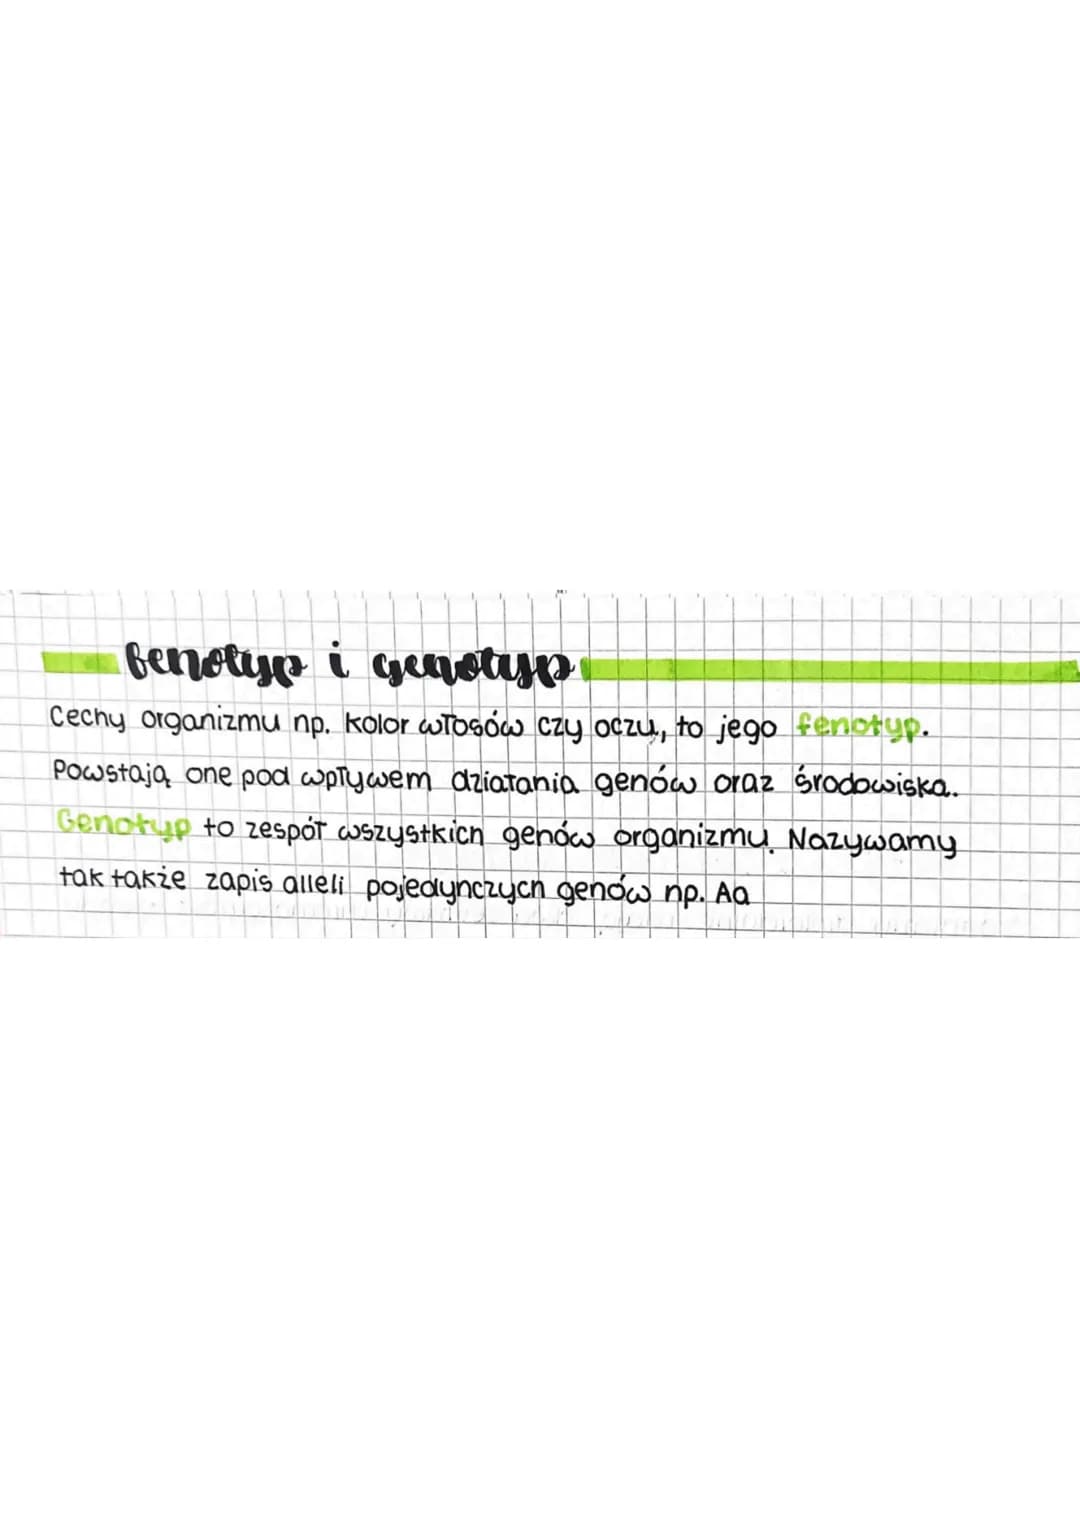 fenotyp i genotyp
Cechy organizmu np. kolor włosów czy oczu, to jego fenotyp.
Powstają one pod wpływem działania genów oraz środowiska.
Genotyp to zespół wszystkich genów organizmu. Nazywamy
tak także zapis alleli pojedynczych genów np. Aa